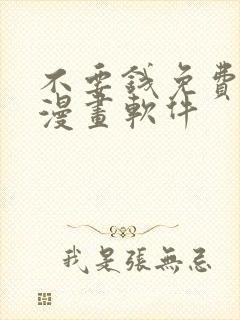 不要錢免費
漫畫軟件
我是張無忌